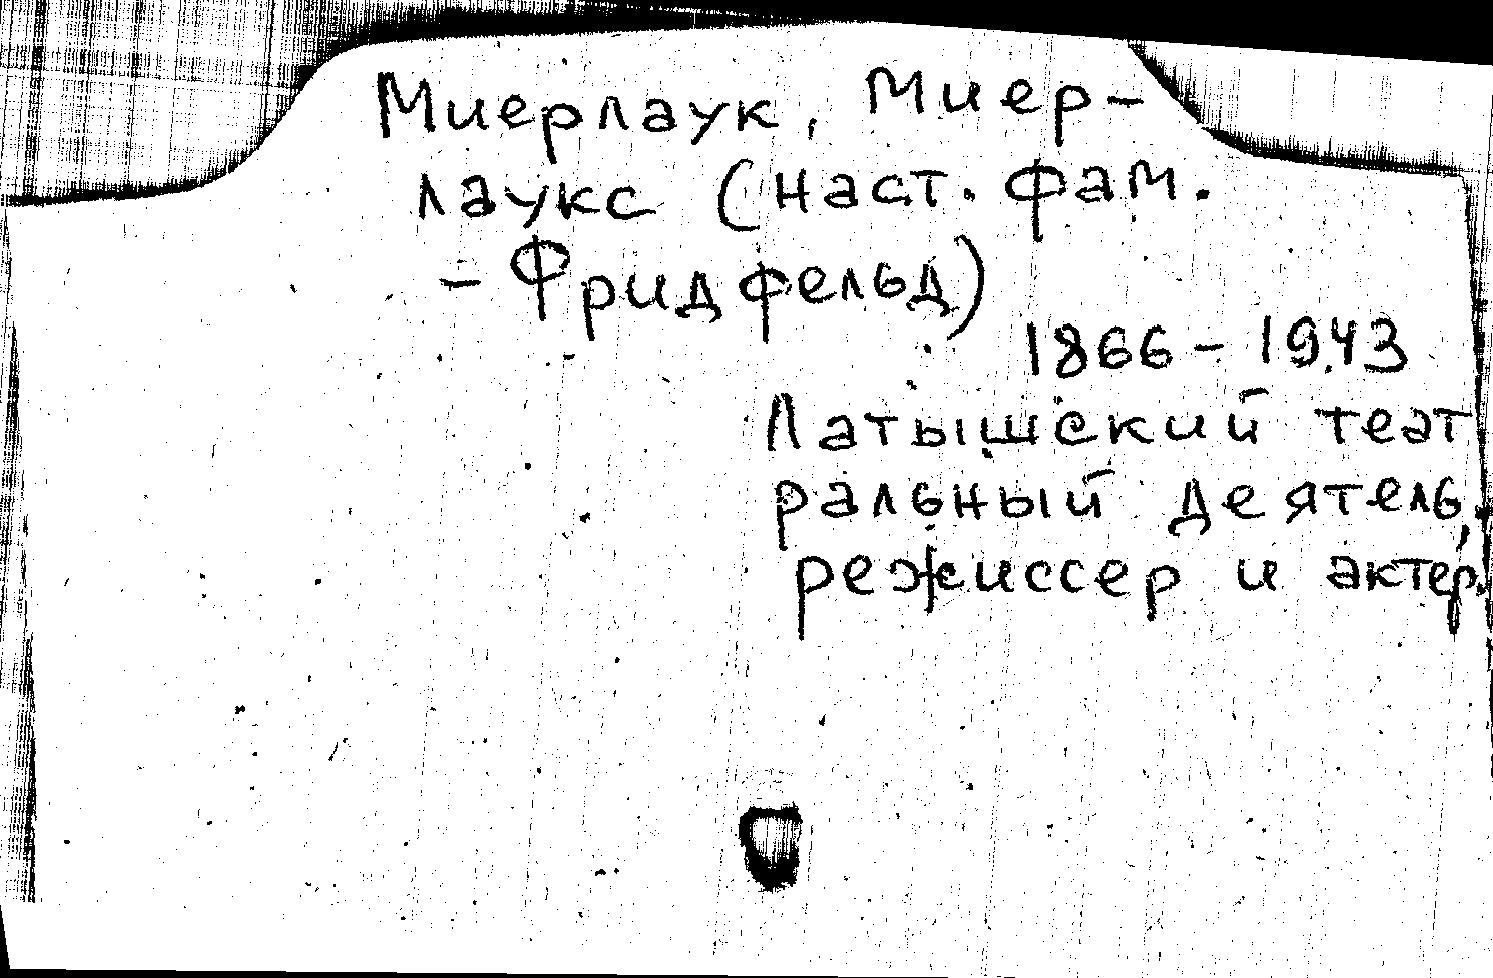 Миерлаук, Миер-
лаукс (наст. фам.
- Фридфельд)
1866 - 1943
Латышский теат
ральный деятель,
режиссер и актер.